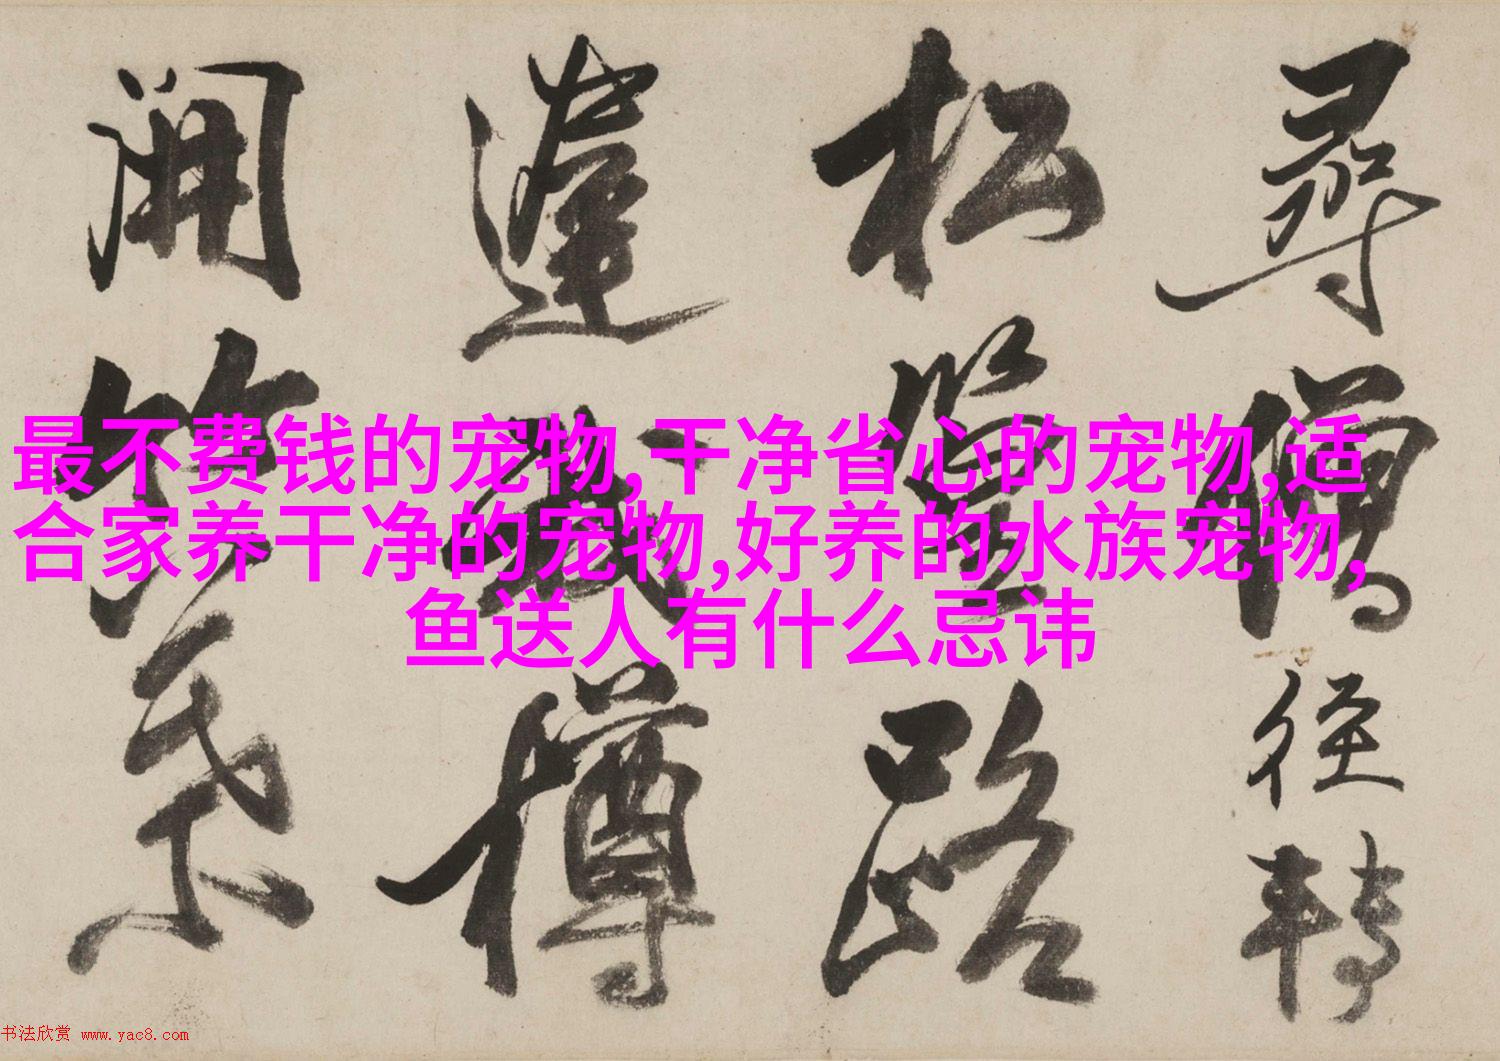 尋僧径轉
松蹬路
蓬我樽
開筇
最不费钱的宠物,干净省心的宠物,适
合家养干净的宠物,好养的水族宠物,
鱼送人有什么忌讳
书法欣赏 www.yac8.com